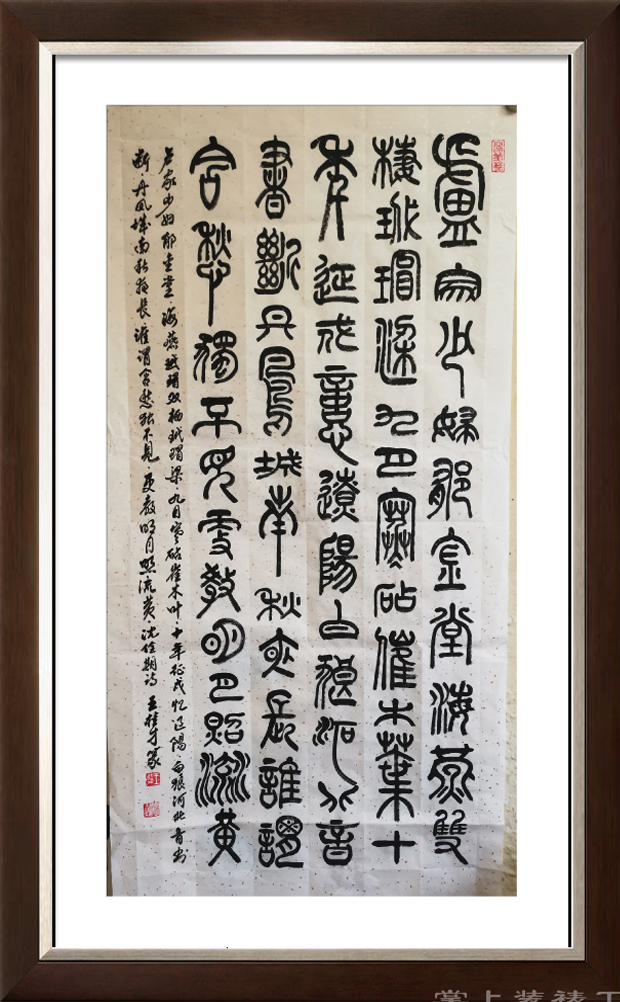 盧家少婦郁金堂海燕雙
棲玳瑁梁九月寒砧催木葉十
年延戍憶遼陽白狼河北音
書斷丹鳳城南秋夜長誰謂
含愁獨不見更教明月照流黃
卢家少妇郁金堂海燕玳瑁双栖玳瑁梁九月寒砧崔木叶十年征戍忆辽阳白狼河北音书
断丹凤城南秋夜长谁谓含愁独不见更教明月照流黄沈佺期诗 王桂才篆
掌上装裱工